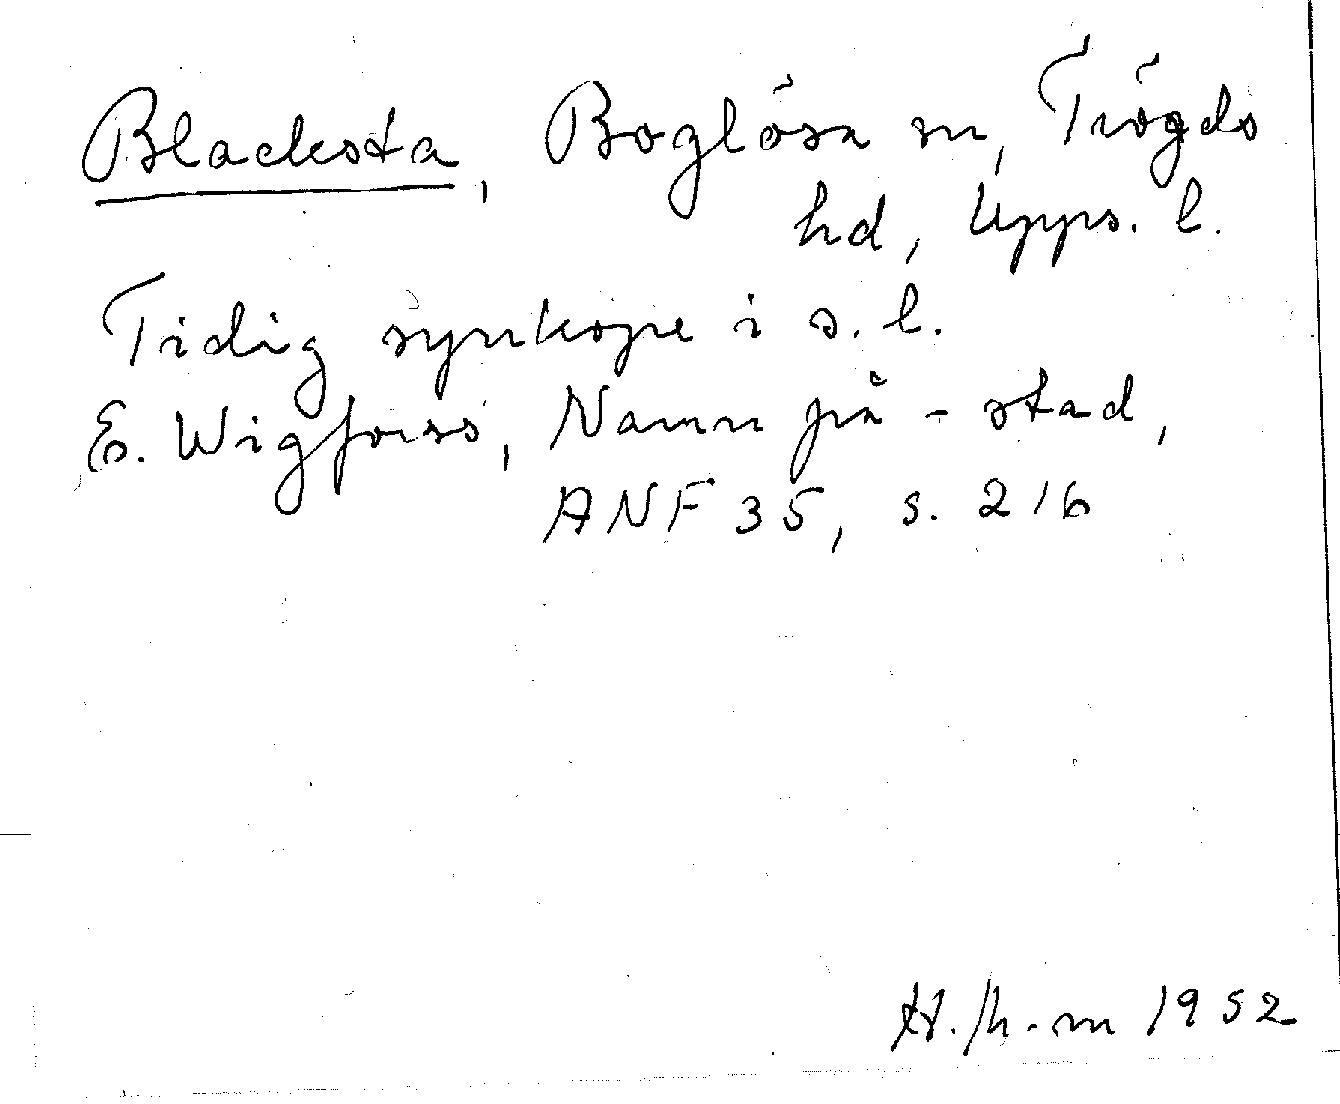 Blacksta, Boglösa sn, Trögds
hd, Upps. l.
Tidig synkope i s. l.
E. Wigforss, Namn på -stad,
ANF 35, s. 216
1952